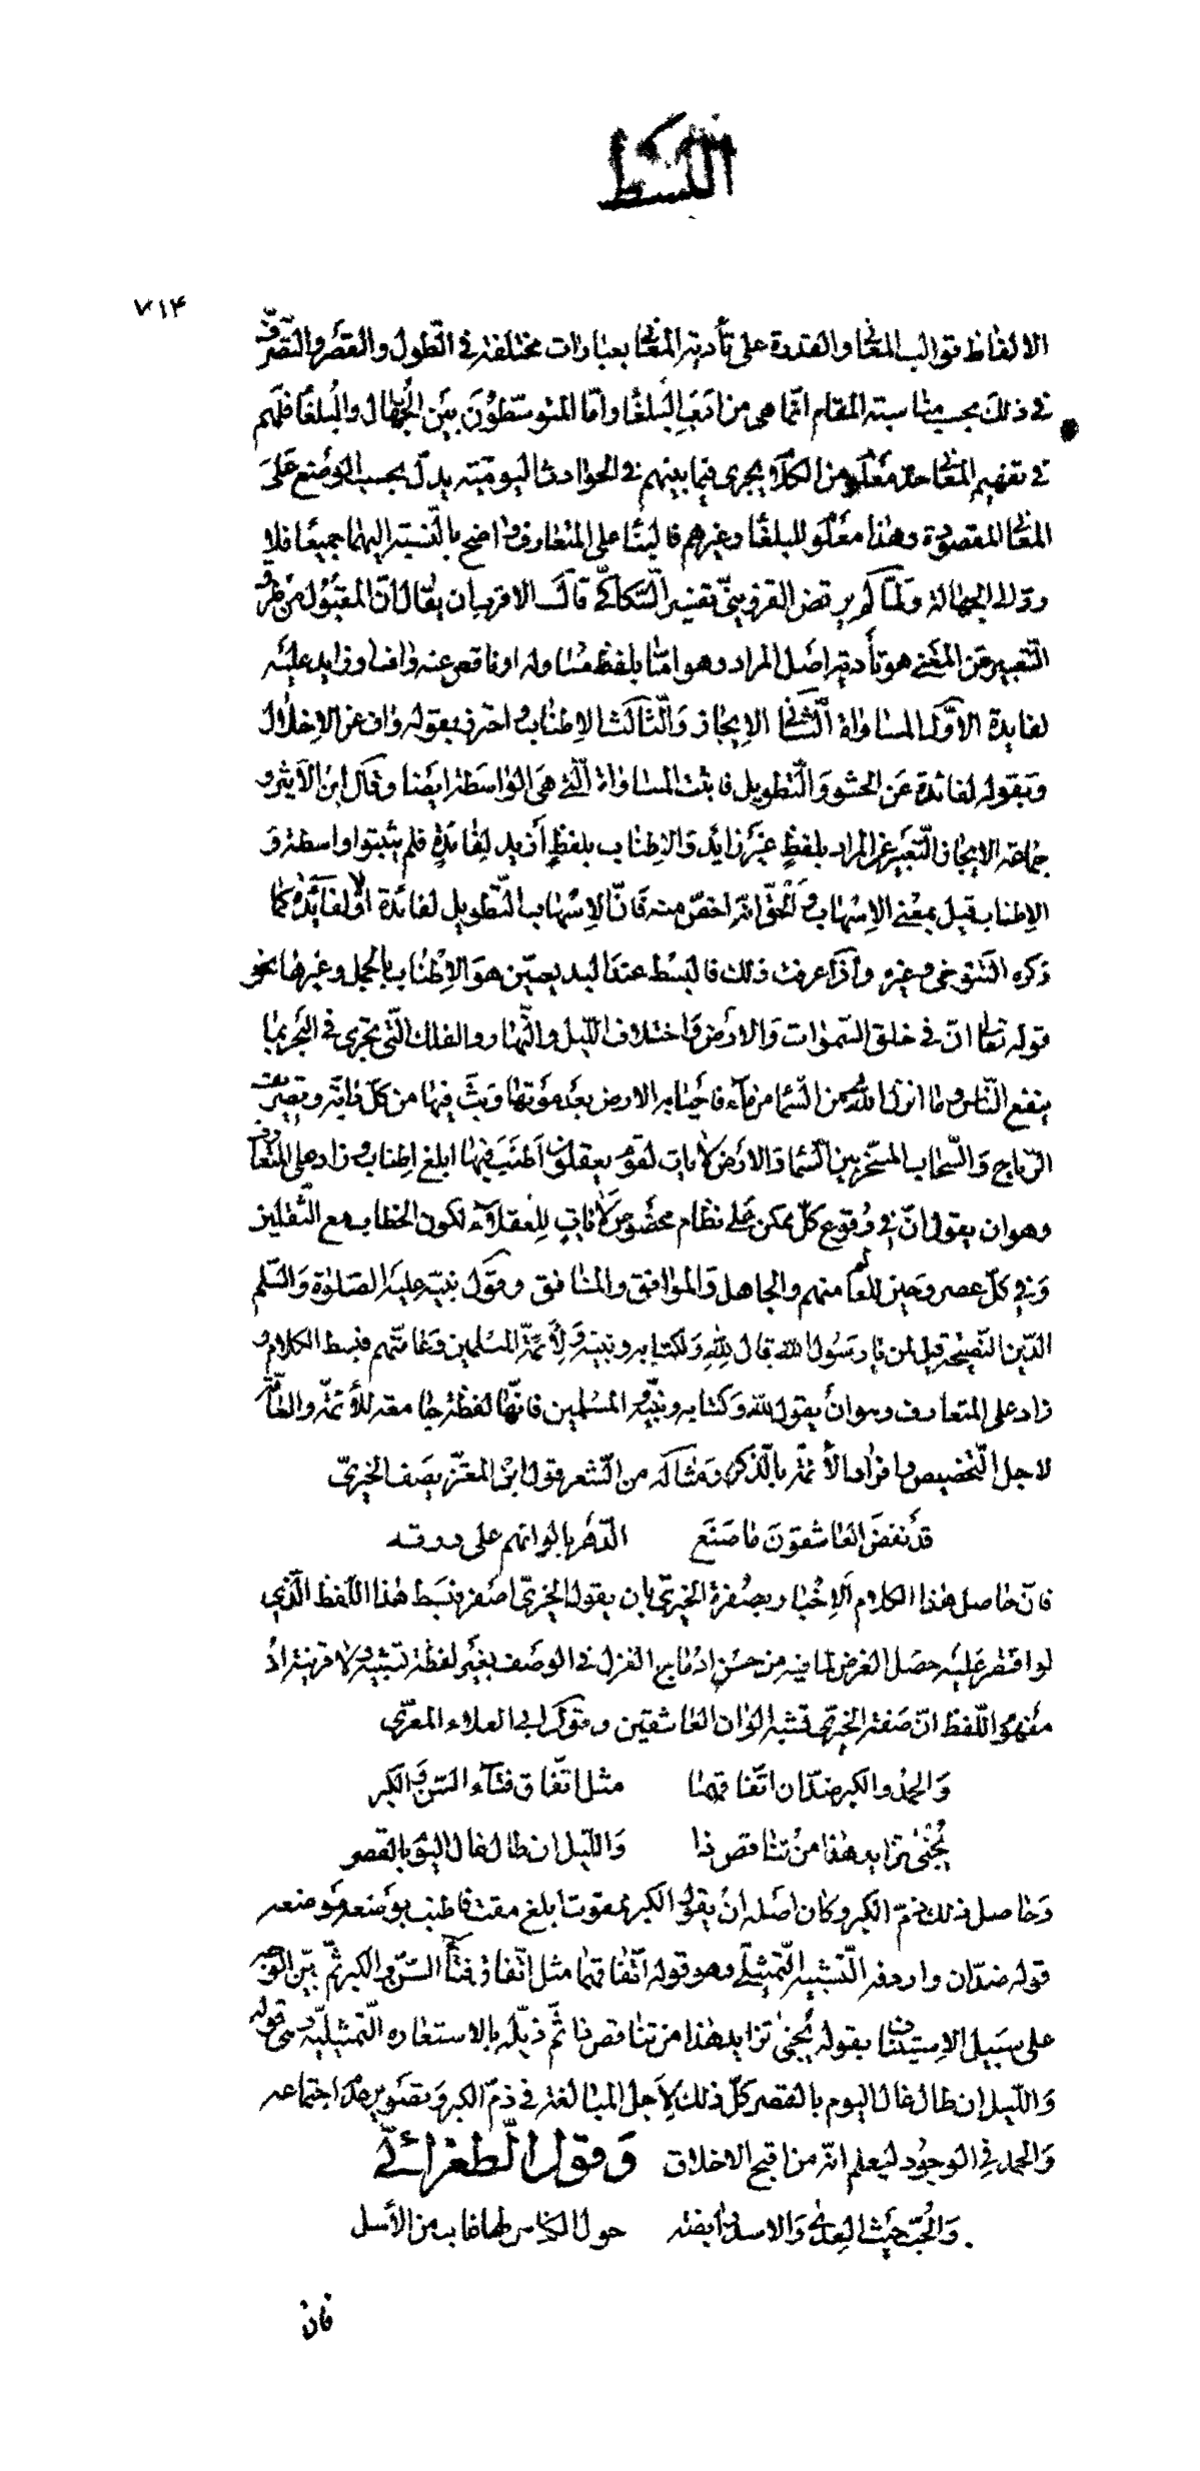 البسط
٧١۴
الالفاظ قوالب المعانى والقدرة على تأدية المعنى بعبارات مختلفة فى الطّول والقصر والتّصرّف
فى ذلك بحسب مناسبة المقام انّما هى من ادَب البلغا وامّا المتوسّطون بين الجُهّال والبُلغا فلهم
فى تفهيم المعانى حدّ معلوم من الكلام يجرى فيما بينهم فى الحوادث اليوميّة يدلّ بحسب الوضع على
المعانى المقصودة وهذا معلوم للبلغا وغيرهم فالبنا على المتعارف واضح بالنسبة اليهما جميعًا فلا
ردّ الى الجهالة ولمّا لم يرتض القزوينىّ تفسير السّكاكىّ قال الاقرب ان يقال انّ المقبول من طرق
التّعبير عن المعنى هو تأدية اصل المراد وهو امّا بلفظ مساو له او ناقص عنه واف او زايد عليه
لفايدة الاوّل المساواة الثّانى الايجاز والثّالث الاطناب واحترز بقوله واف عن الاخلال
وبقوله لفائدة عن الحشو والتّطويل فاثبت المساواة الّتى هى الواسطة ايضا وقال ابن الاثير و
جماعة الايجاز التّعبير عن المراد بلفظٍ غير زائد والاطناب بلفظٍ أزيد لفائدةٍ فلم يثبتوا واسطة و
الاطناب قيل بمعنى الاسهاب والحقّ انّه اخصّ منه فانّ الاسهاب التّطويل لفائدة او لا لفائدة كما
ذكره التنوخى وغيره واذا عرفت ذلك فالبسط عند البديعيّين هو الاطناب بالجمل وغيرها نحو
قوله تعالى انّ فى خلق السّموات والارض واختلاف اللّيل والنّهار والفلك الّتى تجرى فى البحر بما
ينفع النّاس وما انزل الله من السّماء من مآء فاحيا به الارض بعد موتها وبثّ فيها من كلّ دابّة وتصريف
الرّياح والسّحاب المسخّر بين السّماء والارض لايات لقوم يعقلون اطنب فيها ابلغ اطناب وزاد على المتعارف
وهو ان يقول انّ فى وقوع كلّ ممكن على نظام مخصوص لايات للعقلاء لكون الخطاب مع الثّقلين
وفى كلّ عصر وحين للعالم منهم والجاهل والموافق والمنافق وقول نبيّه عليه الصّلوة والسّلم
الدّين النّصيحة قيل لمن يا رسول الله قال لله ولكتابه ونبيّه ولأئمّة المسلمين وعامّتهم فبسط الكلام و
زاد على المتعارف وهو أن يقول لله وكتابه ونبيّه والمسلمين فانّها لفظة جامعة للأئمّة والعامّة
لاجل التّخصيص وافراد الأئمّة بالذّكر ومثاله من الشّعر قول ابن المعتزّ يصف الخيرىّ
قد نفض العاشقون ما صنع الدّهر بالوانهم على ورقه
فانّ حاصل هذا الكلام الاخبار بصفرة الخيرىّ بان يقول الخيرىّ اصفر فبسط هذا اللّفظ الّذى
لو اقتصر عليه حصل الغرض لما فيه من حسن ادماج الغزل فى الوصف بغير لفظة تشبيه ولا قرينة اذ
مفهوم اللّفظ انّ صفة الخيرىّ تشبه الوان العاشقين وقول ابى العلاء المعرّى
والحمد والكبر ضدّان اتّفاقهما مثل اتّفاق فتاء السّنّ والكبر
يُجنى تزايد هذا من تناقص ذا واللّيل ان طال غال اليوم بالقصر
وحاصل ذلك ذمّ الكبر وكان اصله ان يقول الكبر ممقوت ابلغ مقت فاطنب بوضعه موضعه
قوله ضدّان واردفه التّشبيه التّمثيلى وهو قوله اتّفاقهما مثل اتّفاق فتاء السّنّ والكبر ثمّ بيّن الوجه
على سبيل الاستيناف بقوله يُجنى تزايد هذا من تناقص ذا ثمّ ذيّله بالاستعاره التّمثيليّة وهى قوله
واللّيل ان طال غال اليوم بالقصر كلّ ذلك لاجل المبالغة فى ذمّ الكبر وتصوير ضدّ اجتماعه
والحمد فى الوجود ليعلم انّه من اقبح الاخلاق وقول الطغرائىّ
والحُبّ حيث العدى والاسد رابضة حول الكناس لها غاب من الأسل
فان